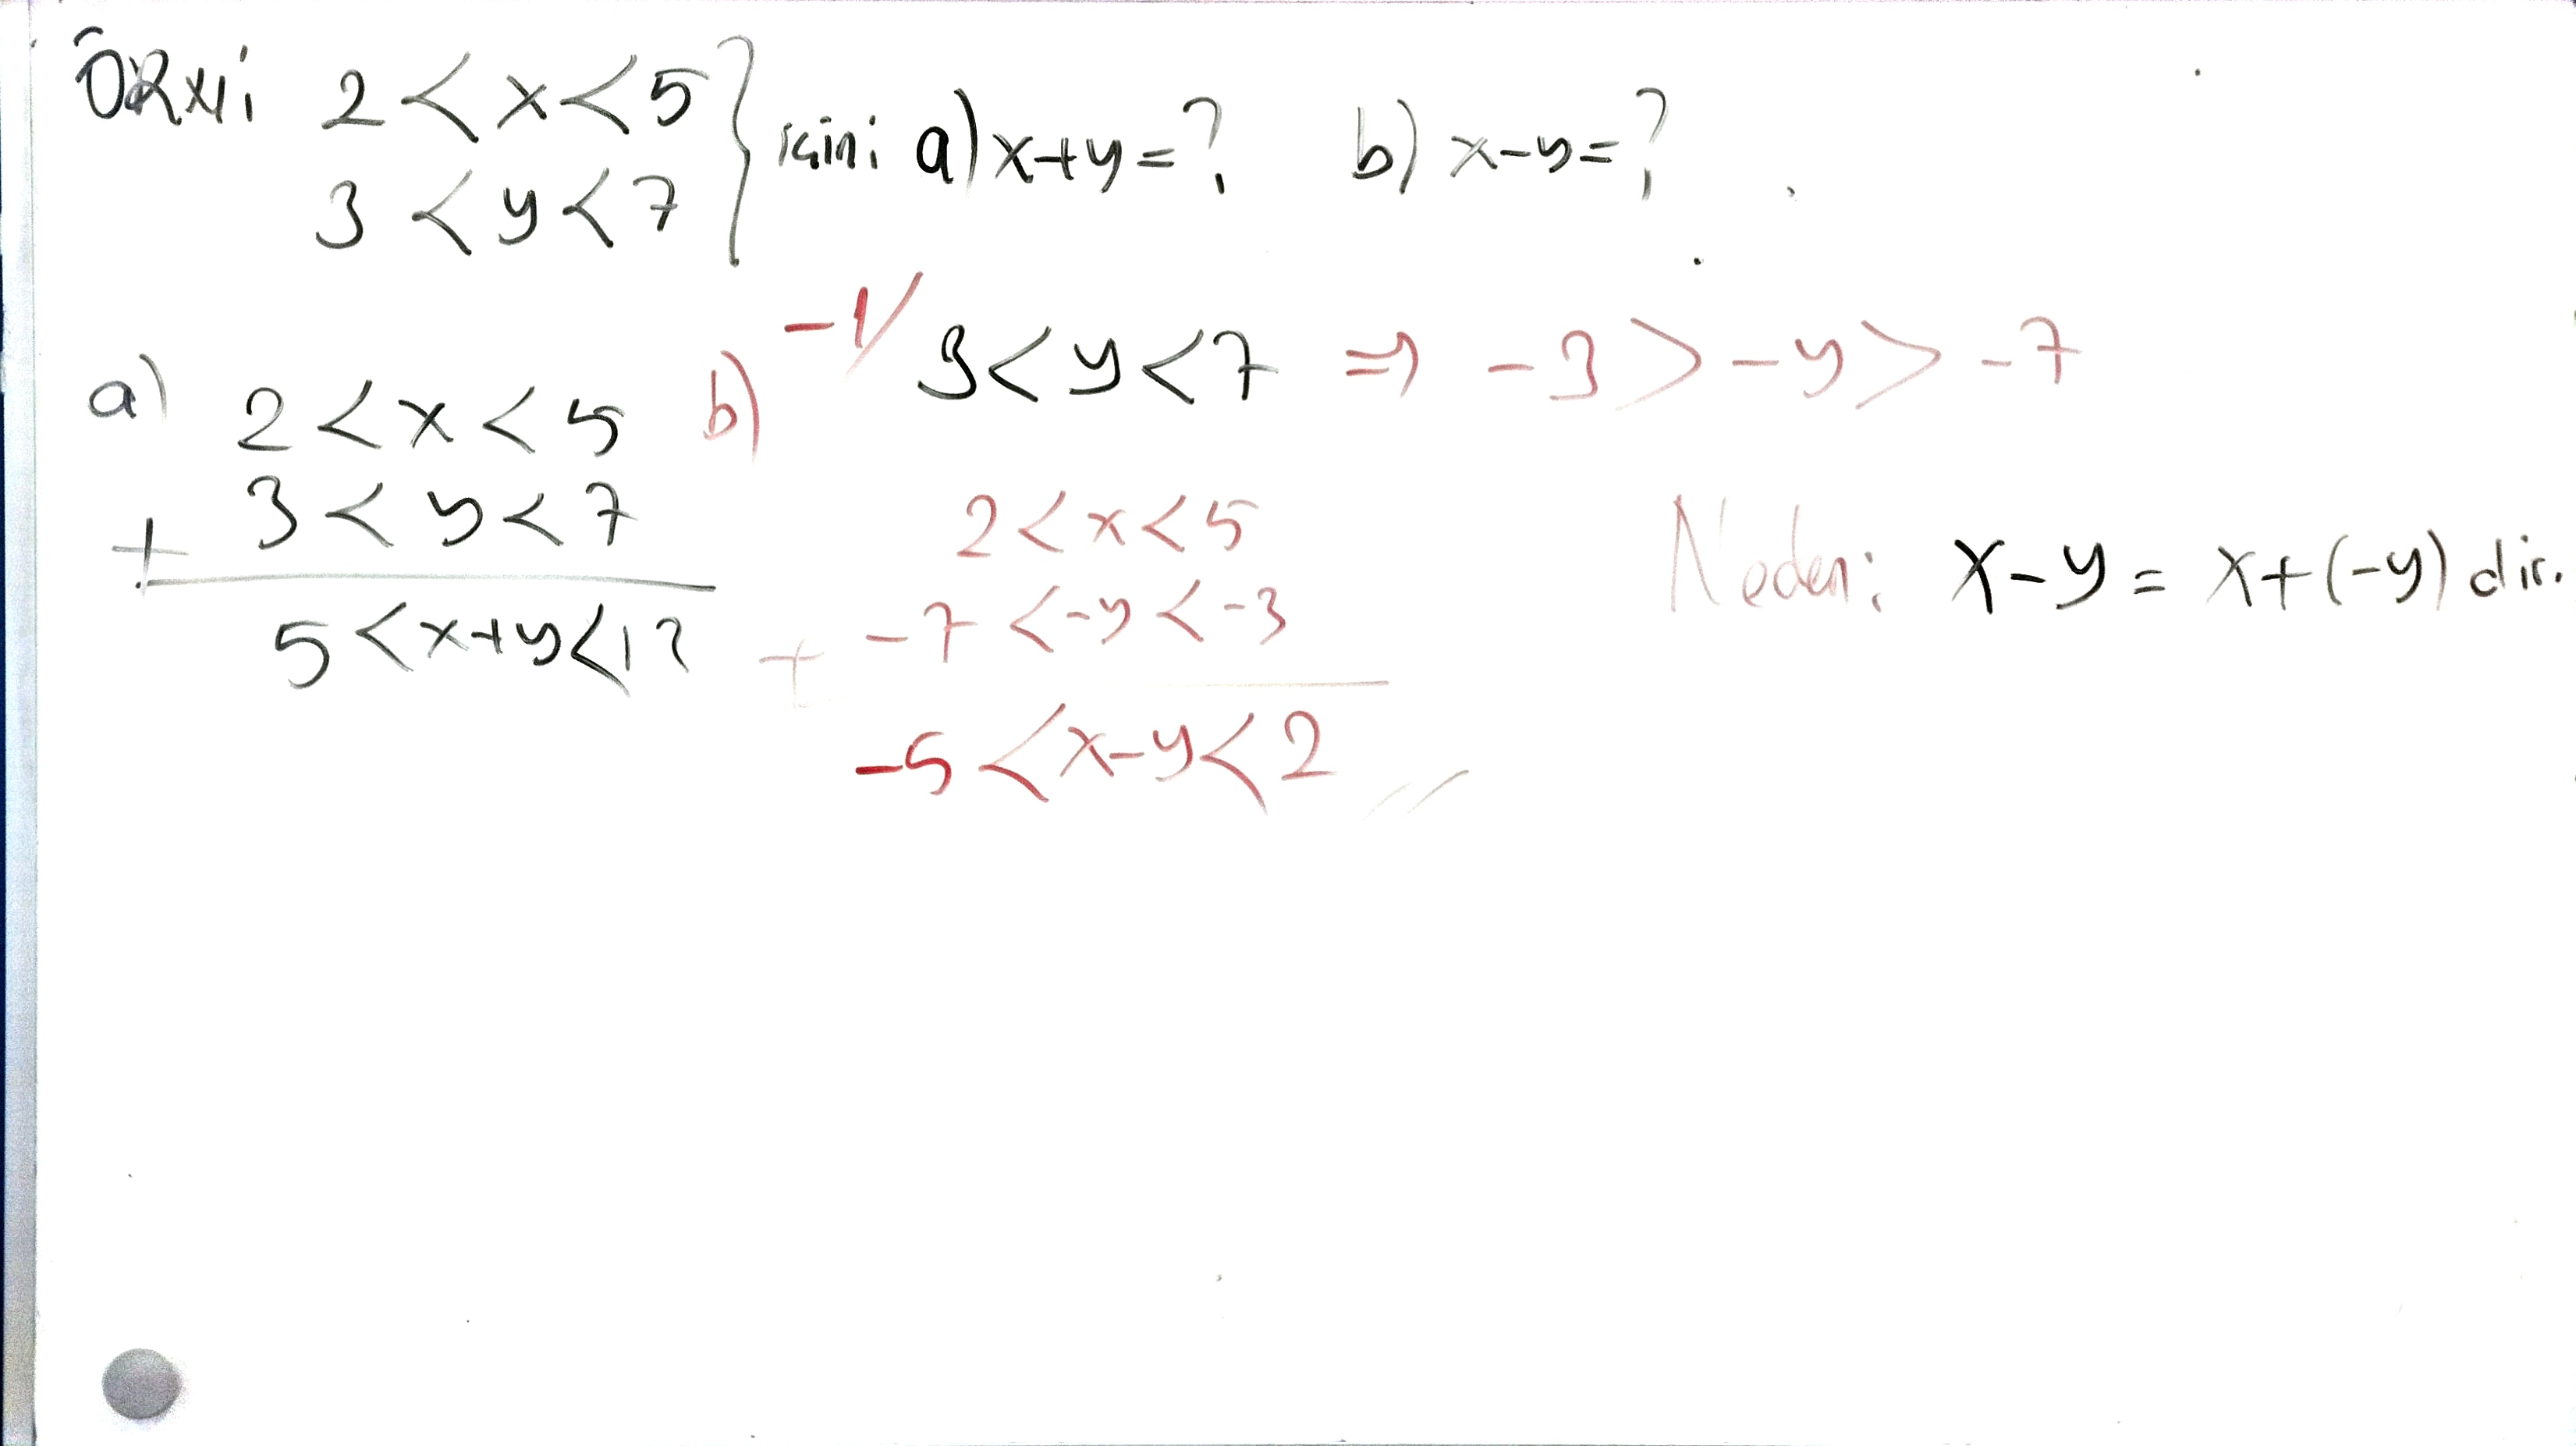 ÖRXI: 2 < x < 5
3 < y < 7 } için: a) x+y=? b) x-y=?
a) 2 < x < 5
3 < y < 7
+
5 < x+y < 12
b) -1/ 3 < y < 7 ⇒ -3 > -y > -7
2 < x < 5
-7 < -y < -3
+
-5 < x-y < 2 //
Neden: x-y = x+(-y) dir.